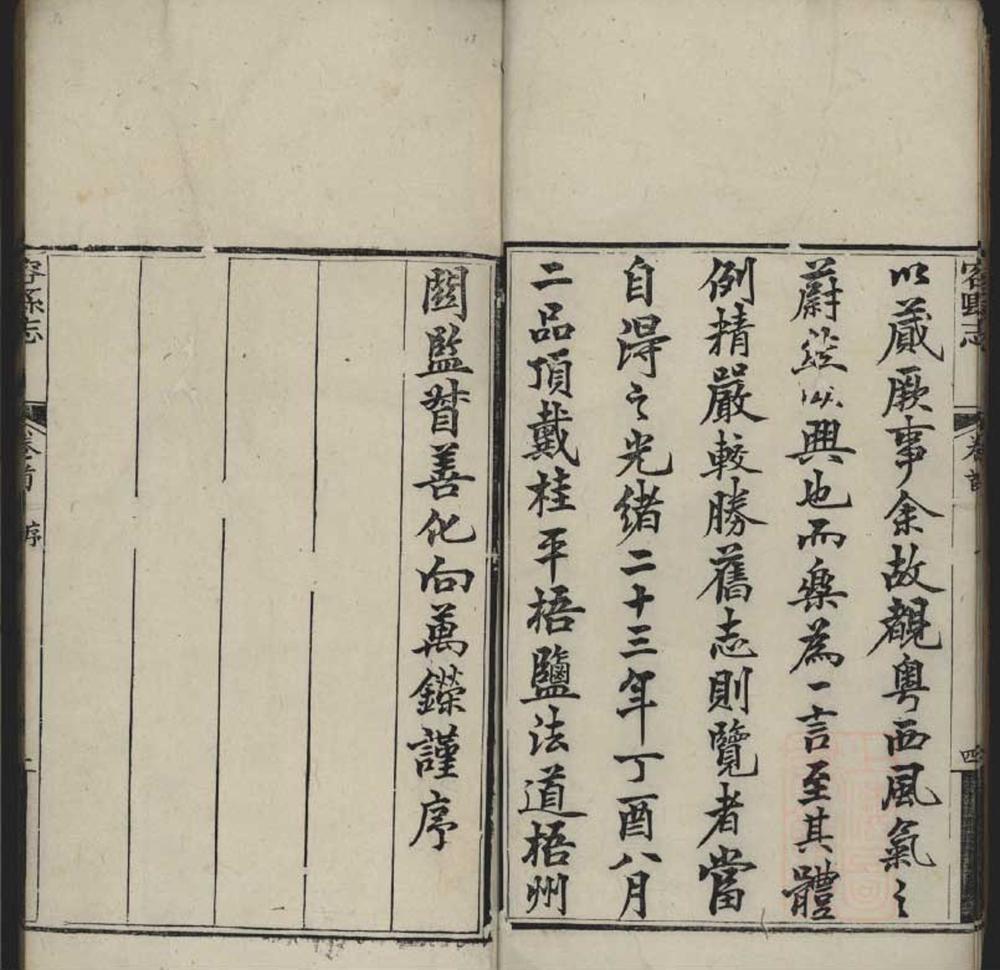 容縣志
卷首
四
以蕆厥事余故覩粵西風氣之
蔚然以興也而樂為一言至其體
例精嚴較勝舊志則覽者當
自得之光緒二十三年丁酉八月
二品頂戴桂平梧鹽法道梧州
關監督善化向萬鑅謹序
容縣志
卷首
序